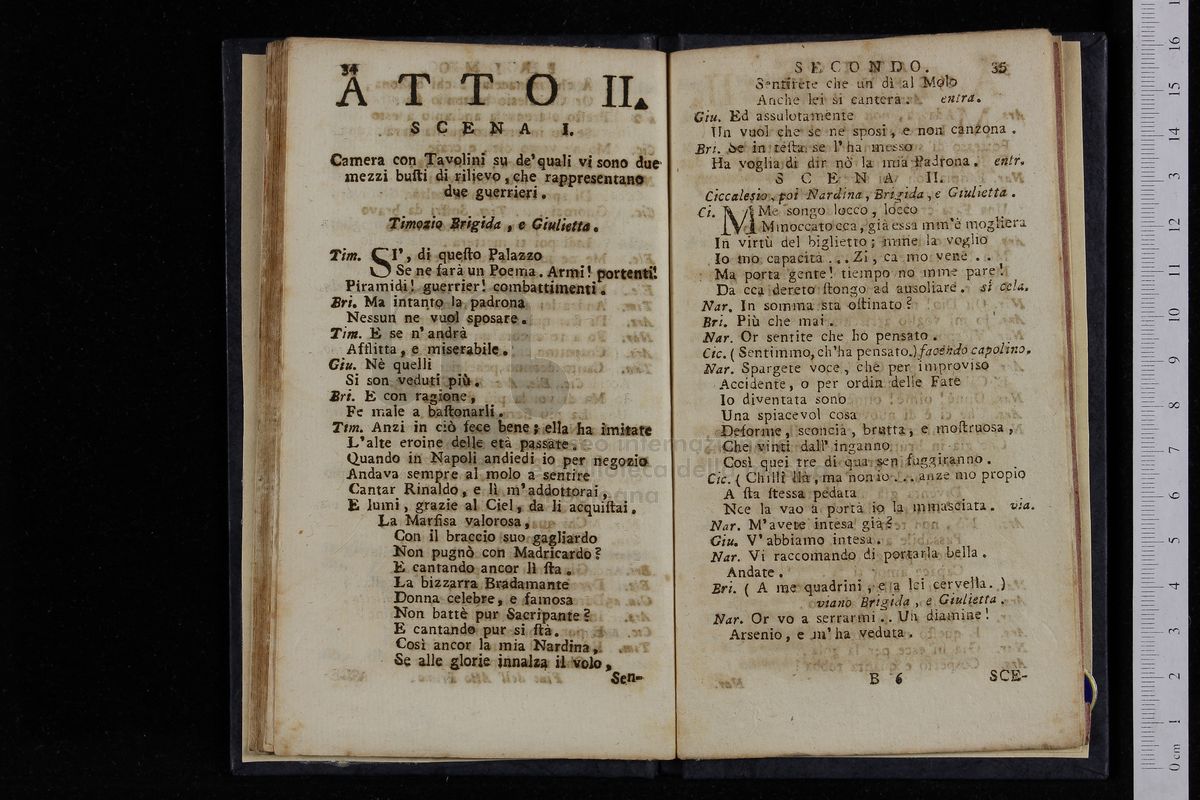 34
ATTO II.
SCENA I.
Camera con Tavolini su de'quali vi sono due
mezzi busti di rilievo, che rappresentano
due guerrieri.
Timozio Brigida, e Giulietta.
Tim. SI', di questo Palazzo
Se ne farà un Poema. Armi! portenti!
Piramidi! guerrier! combattimenti.
Bri. Ma intanto la padrona
Nessun ne vuol sposare.
Tim. E se n'andrà
Afflitta, e miserabile.
Giu. Nè quelli
Si son veduti più.
Bri. E con ragione,
Fe male a bastonarli.
Tim. Anzi in ciò fece bene; ella ha imitate
L'alte eroine delle età passate.
Quando in Napoli andiedi io per negozio
Andava sempre al molo a sentire
Cantar Rinaldo, e lì m'addottorai,
E lumi, grazie al Ciel, da lì acquistai.
La Marfisa valorosa,
Con il braccio suo gagliardo
Non pugnò con Madricardo?
E cantando ancor lì sta.
La bizzarra Bradamante
Donna celebre, e famosa
Non battè pur Sacripante?
E cantando pur si stà.
Così ancor la mia Nardina,
Se alle glorie innalza il volo,
Sen-
SECONDO. 35
Sentirete che un dì al Molo
Anche lei si cantera. entra.
Giu. Ed assulotamente
Un vuol che se ne sposi, e non canzona.
Bri. Se in testa se l'ha messo
Ha voglia di dir nò la mia Padrona. entr.
SCENA II.
Ciccalesio, poi Nardina, Brigida, e Giulietta.
Ci. MMe songo locco, locco
Mminoccato cca, già essa mm'è mogliera
In virtù del biglietto; mme la voglio
Io mo capacita ... Zi, ca mo vene ..
Ma porta gente! tiempo no mme pare!
Da cca dereto stongo ad ausoliare. si cela.
Nar. In somma sta ostinato?
Bri. Più che mai.
Nar. Or sentite che ho pensato.
Cic. (Sentimmo, ch'ha pensato.) facendo capolino.
Nar. Spargete voce, che per improviso
Accidente, o per ordin delle Fate
Io diventata sono
Una spiacevol cosa
Deforme, sconcia, brutta, e mostruosa,
Che vinti dall'inganno
Così quei tre di qua sen fuggiranno.
Cic. (Chilli llà, ma non io ... anze mo propio
A sta stessa pedata
Nce la vao a portà io la mmasciata. via.
Nar. M'avete intesa già?
Giu. V'abbiamo intesa.
Nar. Vi raccomando di portarla bella.
Andate.
Bri. (A me quadrini, e a lei cervella.)
viano Brigida, e Giulietta.
Nar. Or vo a serrarmi .. Un diamine!
Arsenio, e m'ha veduta.
B 6 SCE-